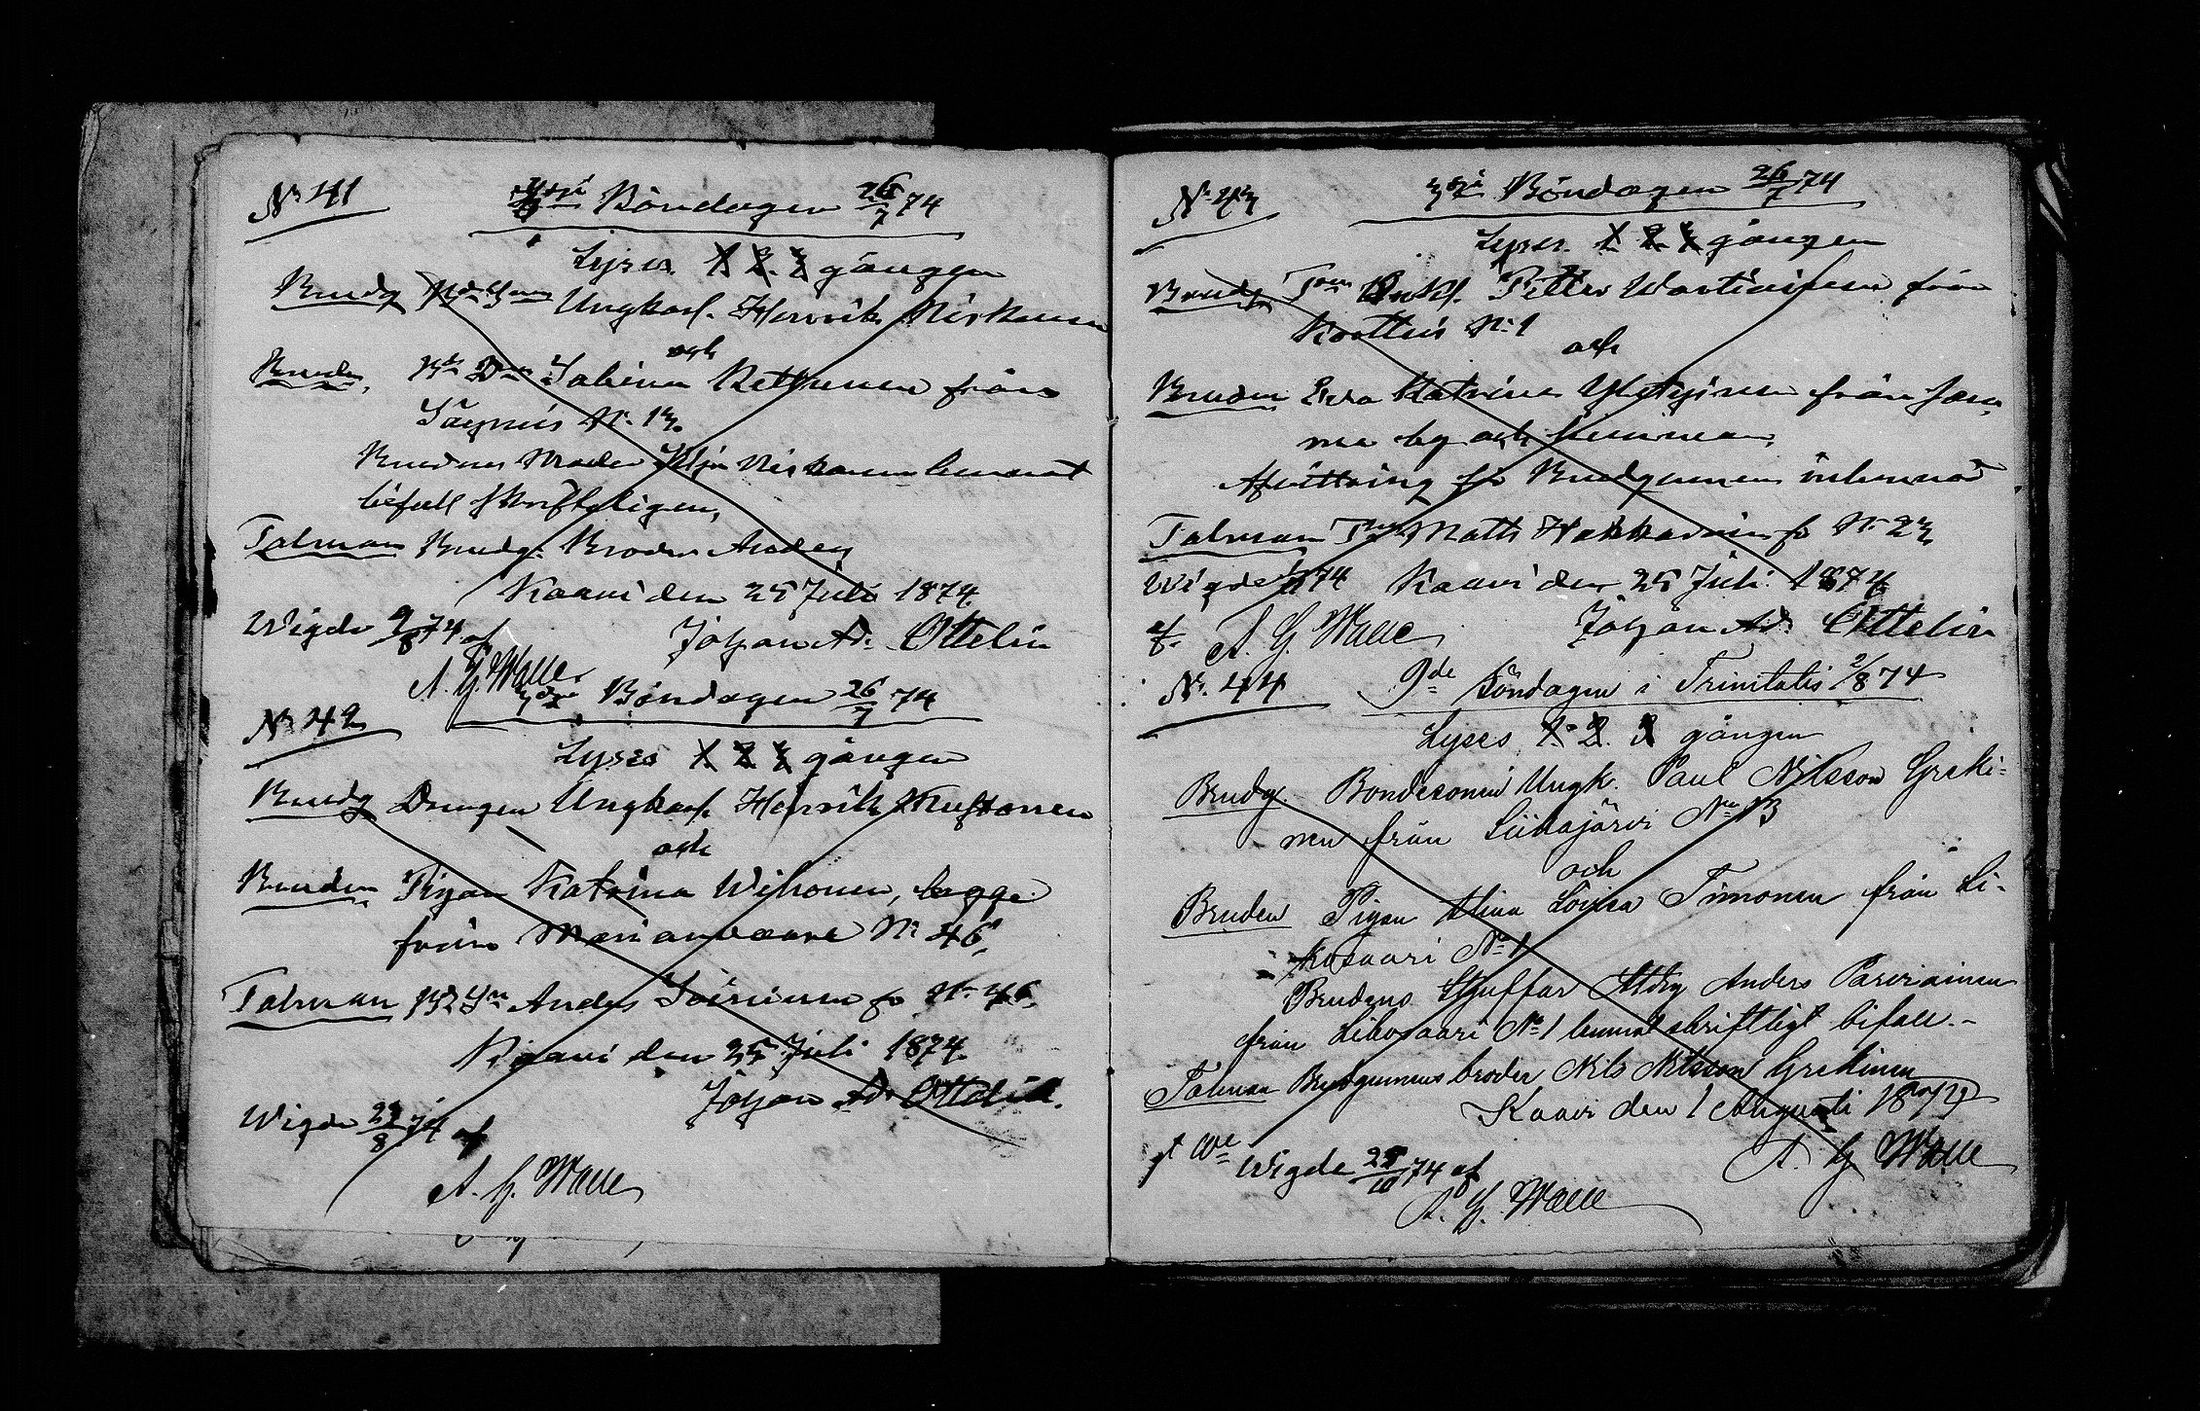 N: 41
3dje Böndagen 26/7 74
Lyses 1. 2. 3 gången
Brudg Ungkarl. Henrik Niskanen
och
Bruden, Bd Dn Sabina Ketturen från
Säynäis N: 13.
Brudens Moder Niskanen lemnat
bifall skriftligen,
Talman Brudg: Broder Anders
Kaavi den 25 Juli 1874.
Wigde 9/8 74 af
Johan Ad: Ottelin
A. G. Walle.
N: 42
3dje Böndagen 26/7 74
Lyses 1. 2. 3 gången
Brudg Drengen Ungkarl. Henrik
och
Bruden Pigan Katrina Wihonen, begge
från Marianvaara N: 46.
Talman Bd Sn Anders fr N: 46.
Kaavi den 25 Juli 1874.
Johan Ad: Ottelin.
Wigde 23/8 74 af
A. G. Walle
N: 43
3dje Böndagen 26/7 74
Lyses. 1. 2. 3 gången
Brudg Enkl. Petter Wartiainen från
N: 1
och
Bruden Eva Katrina från sam,
ma by och hemman,
Afvittring för Brudgummen inlemnad
Talman Matts Hakkarainen fr N: 23,
Wigde 74 Kaavi den 25 Juli 1874
af A. G. Walle
Johan Ad: Ottelin
N: 44
9de Söndagen i Trinitatis 2/8 74
Lyses 1. 2. 3 gången
Brudg. Bondesonen Ungk. Paul Nilsson Greki-
nen från Siikajärvi No 13
och
Bruden Pigan Stina Lovisa Timonen från Li-
kosaari No 1
Brudens Styffar Anders Parviainen
från Likosaari No 1 lemnat skriftligt bifall.-
Talman Brudgummens broder Nils Nilsson Grekinen
Kaavi den 1 Augusti 1874
A. G. Walle
Wigde 25/10 74 af
A. G. Walle